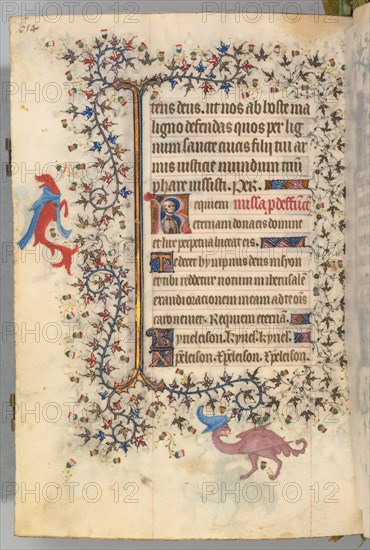 614
tens deus. ut nos ab hoste ma
ligno defendas quos per lig
num sancte crucis filij tui ar
mis iusticie mundum trium
phare iussisti. Per.
Requiem missa p defunc
eternam dona eis domine
et lux perpetua luceat eis.
Te decet hympnus deus in syon
et tibi reddetur votum in iherusalem
exaudi orationem meam ad te omis
caro veniet. Requiem eternam.
Kyrieleison. Kyriel. Kyriel.
Xpeleison. Xpeleison. Xpeleison.
PHOTO 12